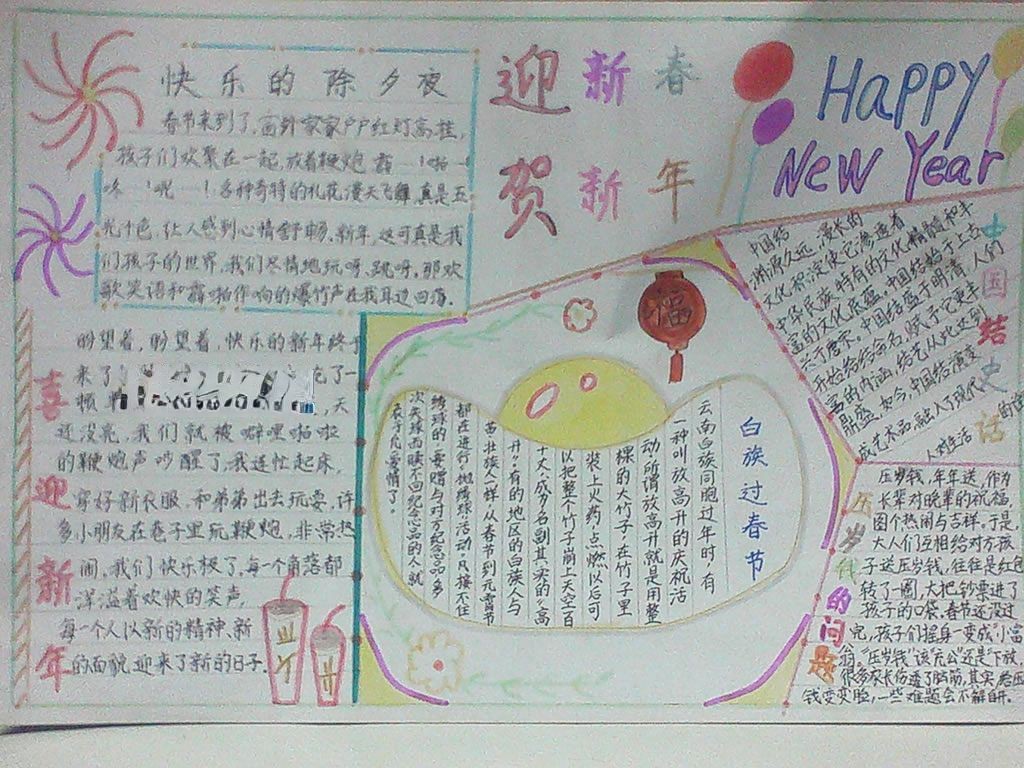 快乐的除夕夜
春节来到了，窗外家家户户红灯高挂，
孩子们欢聚在一起，放着鞭炮 霹——！啪——！
咚——！呢——！各种奇特的礼花漫天飞舞，真是五
光十色，让人感到心情舒畅。新年，这可真是我
们孩子的世界，我们尽情地玩呀，跳呀，那欢
歌笑语和霹啪作响的爆竹声在我耳边回荡。
迎新春
贺新年
Happy
New Year
喜迎新年
盼望着，盼望着，快乐的新年终于
来了
，天
还没亮，我们就被噼里啪啦
的鞭炮声吵醒了，我连忙起床，
穿好新衣服，和弟弟出去玩耍，许
多小朋友在巷子里玩鞭炮，非常热
闹，我们快乐极了，每一个角落都
洋溢着欢快的笑声，
每一个人以新的精神、新
的面貌迎来了新的日子。
福
白族过春节
云南白族同胞过年时，有
一种叫放高升的庆祝活
动，所谓放高升就是用整
棵的大竹子，在竹子里
装上火药，点燃以后可
以把整个竹子崩上天空百
十丈，成为名副其实的“高
升”。有的地区的白族人与
苗、壮族人一样，从春节到元宵节
都在进行“抛绣球”活动。凡接不住
绣球的，要赠与对方纪念品，多
次失球而赎不回纪念品的人就
表示凡爱情了。
中国结史话
中国结
渊源久远，漫长的
文化积淀使它渗透着
中华民族特有的文化精髓和丰
富的文化底蕴。中国结始于上古，
兴于唐宋。中国结盛于明清，人们
开始给结命名，赋予它更丰
富的内涵，结艺从此达到
鼎盛。如今，中国结演变
成艺术品，融入了现代
人对生活
压岁钱的问题
压岁钱，年年送，作为
长辈对晚辈的祝福，
图个热闹与吉祥。于是，
大人们互相给对方孩
子送压岁钱，往往是红包
转了一圈，大把钞票进了
孩子的口袋。春节还没过
完，孩子们摇身一变成“小富
翁。“压岁钱”该“充公”还是“下放”，
很多家长伤透了脑筋，其实给压
钱变变脸，一些难题会不解自开。